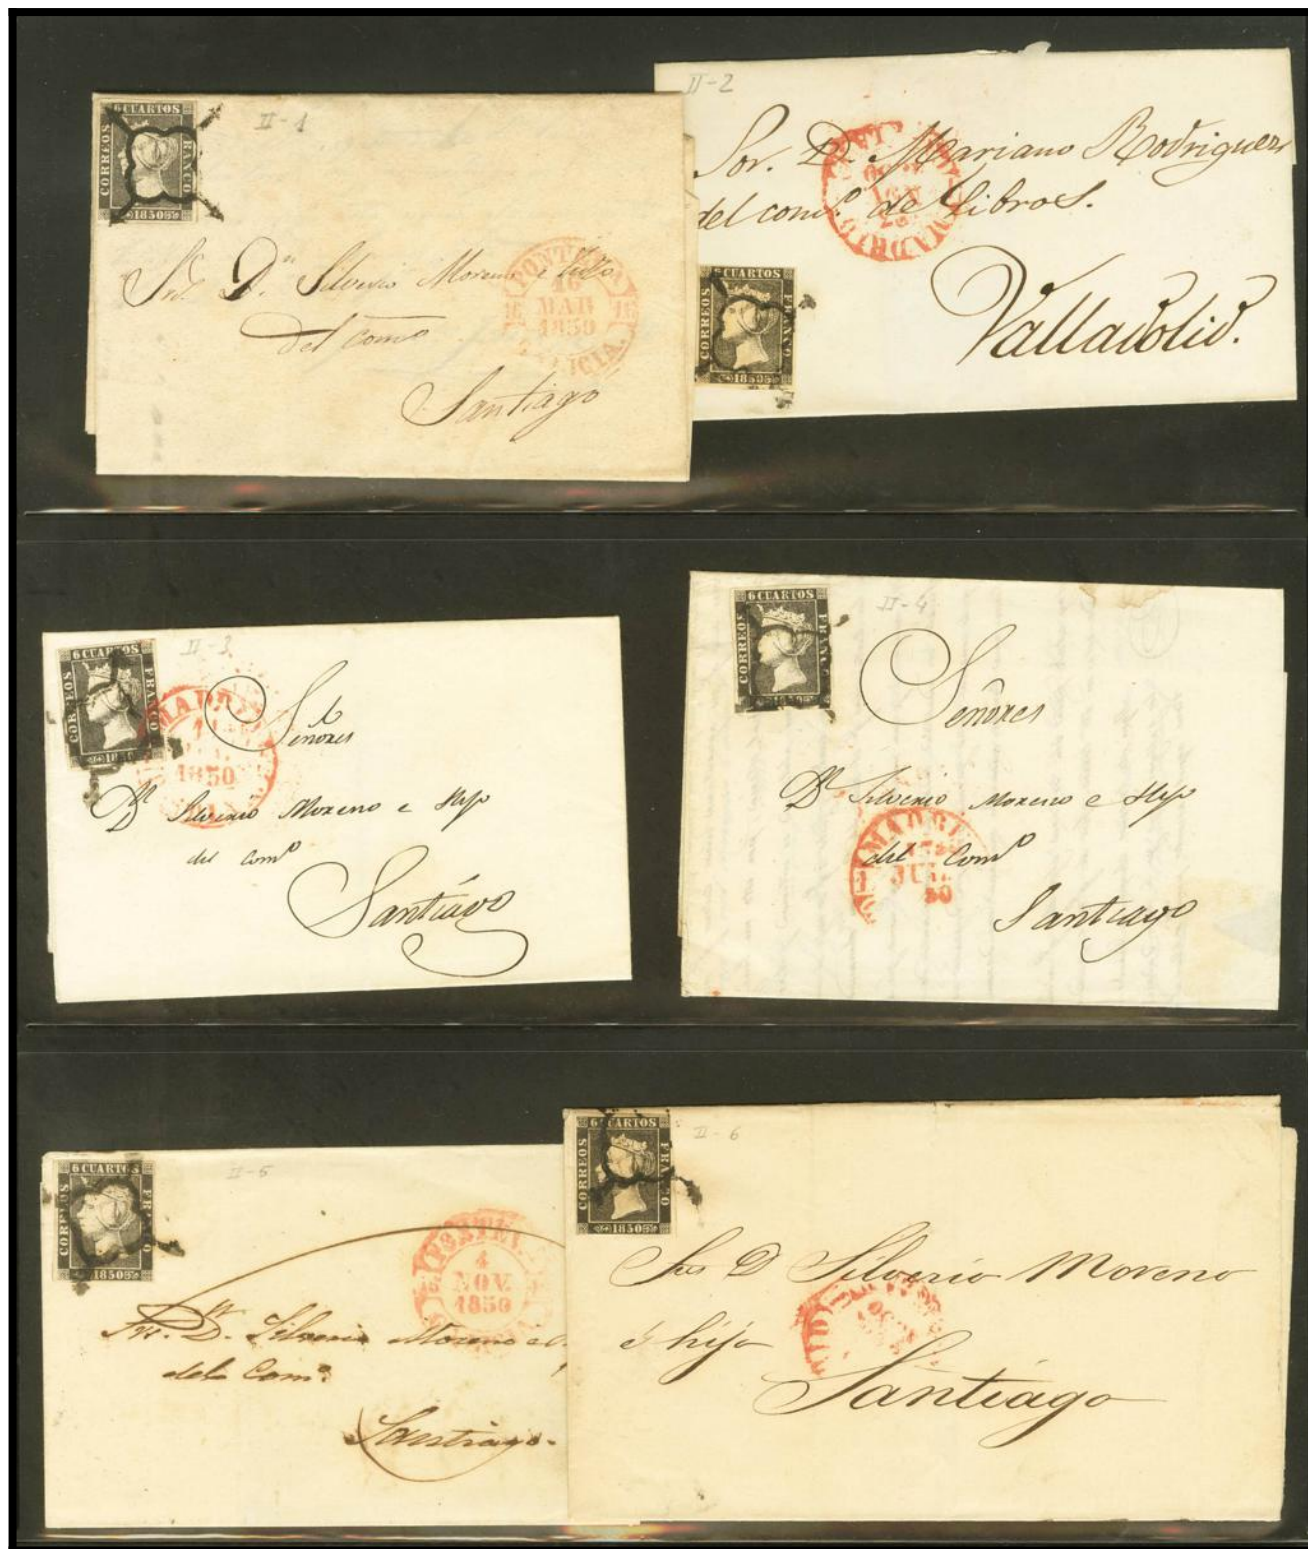 6 CUARTOS
CORREOS
FRANCO
1850
II-1
Sres. Dn. Silverio Moreno e hijo
del Como
Santiago
PONTEV
16
MAR
1850
GALICIA.
16
16
II-2
Sor. D. Mariano Rodriguez
del como. de Libros.
Valladolid.
MADRID
6 CUARTOS
CORREOS
FRANCO
1850
II-3
6 CUARTOS
CORREOS
FRANCO
1850
Señores
MADRID
1850
Dn Silverio Moreno e Hijo
del Como
Santiago
II-4
6 CUARTOS
CORREOS
FRANCO
1850
Señores
Dn Silverio Moreno e Hijo
del Como
MADRI
JUL
50
Santiago
II-5
6 CUARTOS
CORREOS
FRANCO
1850
PONTEV.
4
NOV.
1850
Srs. Dn. Silverio Moreno e
del Como.
Santiago.
II-6
6 CUARTOS
CORREOS
FRANCO
1850
Sres D Silverio Moreno
é hijo
Santiago